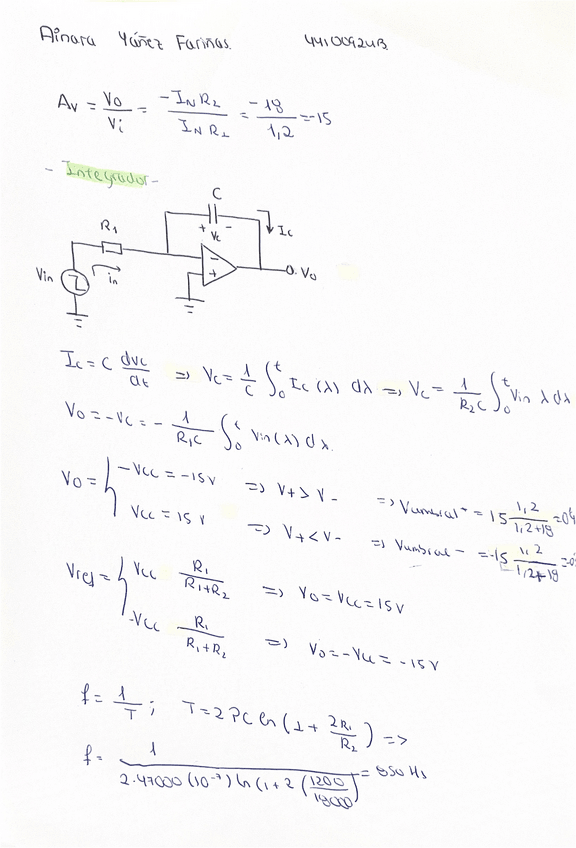 Ainara Yáñez Fariñas. 44100924B
Av = Vo/Vi = -IN R2 / IN R1 = -18/1,2 = -15
- Integrador -
C
+ Vc -
Ic
R1
in
Vin
-
+
Vo
Ic = C dvc/dt => Vc = 1/C ∫0^t Ic (λ) dλ => Vc = 1/(R2C) ∫0^t Vin λ dλ
Vo = -Vc = - 1/(R1C) ∫0^t Vin(λ) dλ.
Vo = { -Vcc = -15V => V+ > V- => Vumbral+ = 15 1,2/(1,2+18) =
Vcc = 15 V => V+ < V- => Vumbral- = -15 1,2/(1,2+18) =
Vref = { Vcc R1/(R1+R2) => Vo = Vcc = 15V
-Vcc R1/(R1+R2) => Vo = -Vcc = -15V
f = 1/T ; T = 2 PC ln (1 + 2R1/R2) =>
f = 1/(2.47000 (10^-7) ln (1 + 2 (1200/18000))) = 850 Hz